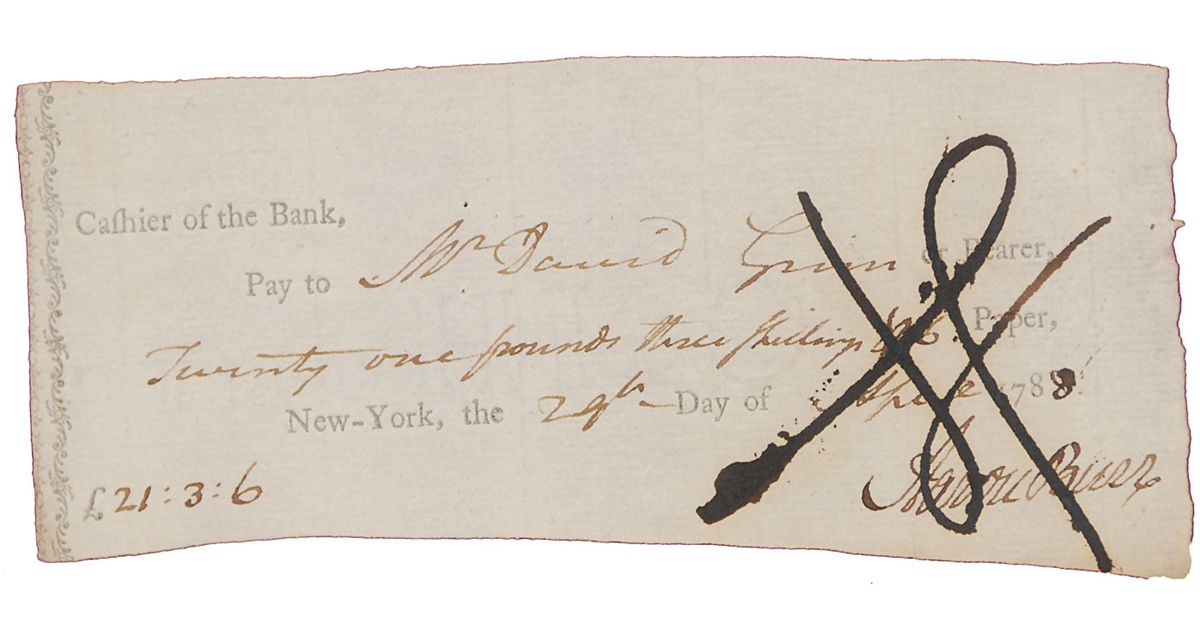 Caſhier of the Bank,
Pay to Mr David Grim or Bearer,
Twenty one pounds three shillings &6. Paper,
New-York, the 29th Day of April 1788.
£ 21:3:6
Aaron Burr